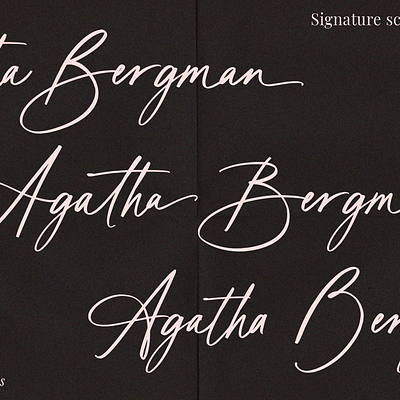 Signature sc
ta Bergman
Agatha Bergm
Agatha Ber
s